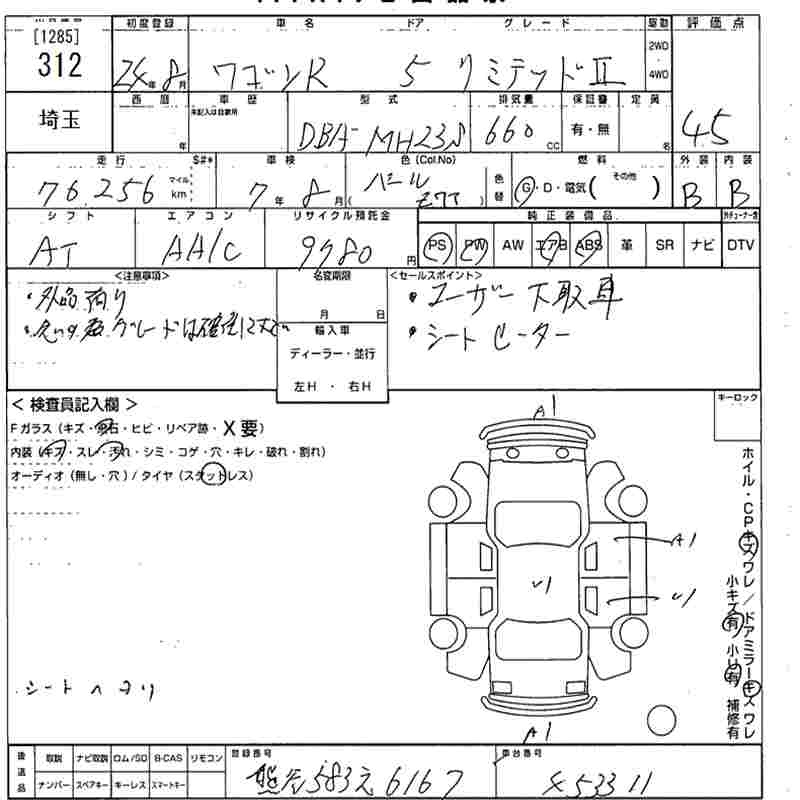 [1285]
312
埼玉
初度登録 車名 ドア グレード 駆動 評価点
24年8月 ワゴンR 5 リミテッドⅡ 2WD・4WD
西暦 車歴 型式 排気量 保証書 定員
未記入は自家用
年 DBA-MH23S 660cc 有・無 名 4.5
走行 S#* 車検 色(Col.No) 燃料 外装 内装
76.256 マイル km 7年8月 パール ( Z7T ) 色替 Ⓖ・D・電気( その他 ) B B
シフト エアコン リサイクル預託金 純正装備品
AT AA/C 9780円 PS PW AW エアB ABS 革 SR ナビ DTV
<注意事項> 名変期限 <セールスポイント>
・外品有り 月 日 ・ユーザー下取車
輸入車 ・シートヒーター
ディーラー・並行
左H・右H
<検査員記入欄> キーロック
Fガラス(キズ・飛石・ヒビ・リペア跡・X要)
内装(キズ・スレ・汚れ・シミ・コゲ・穴・キレ・破れ・割れ)
オーディオ(無し・穴)/タイヤ(スタッドレス)
A1
A1
U1
U1
A1
ホイル・CPキズワレ/ドアミラーキズワレ
小キズ有 小凹有 補修有
シートヘタリ
後送品 取説 ナビ取説 ロム/SD B-CAS リモコン 登録番号 車台番号
ナンバー スペアキー キーレス スマートキー 熊谷583え6167 853311